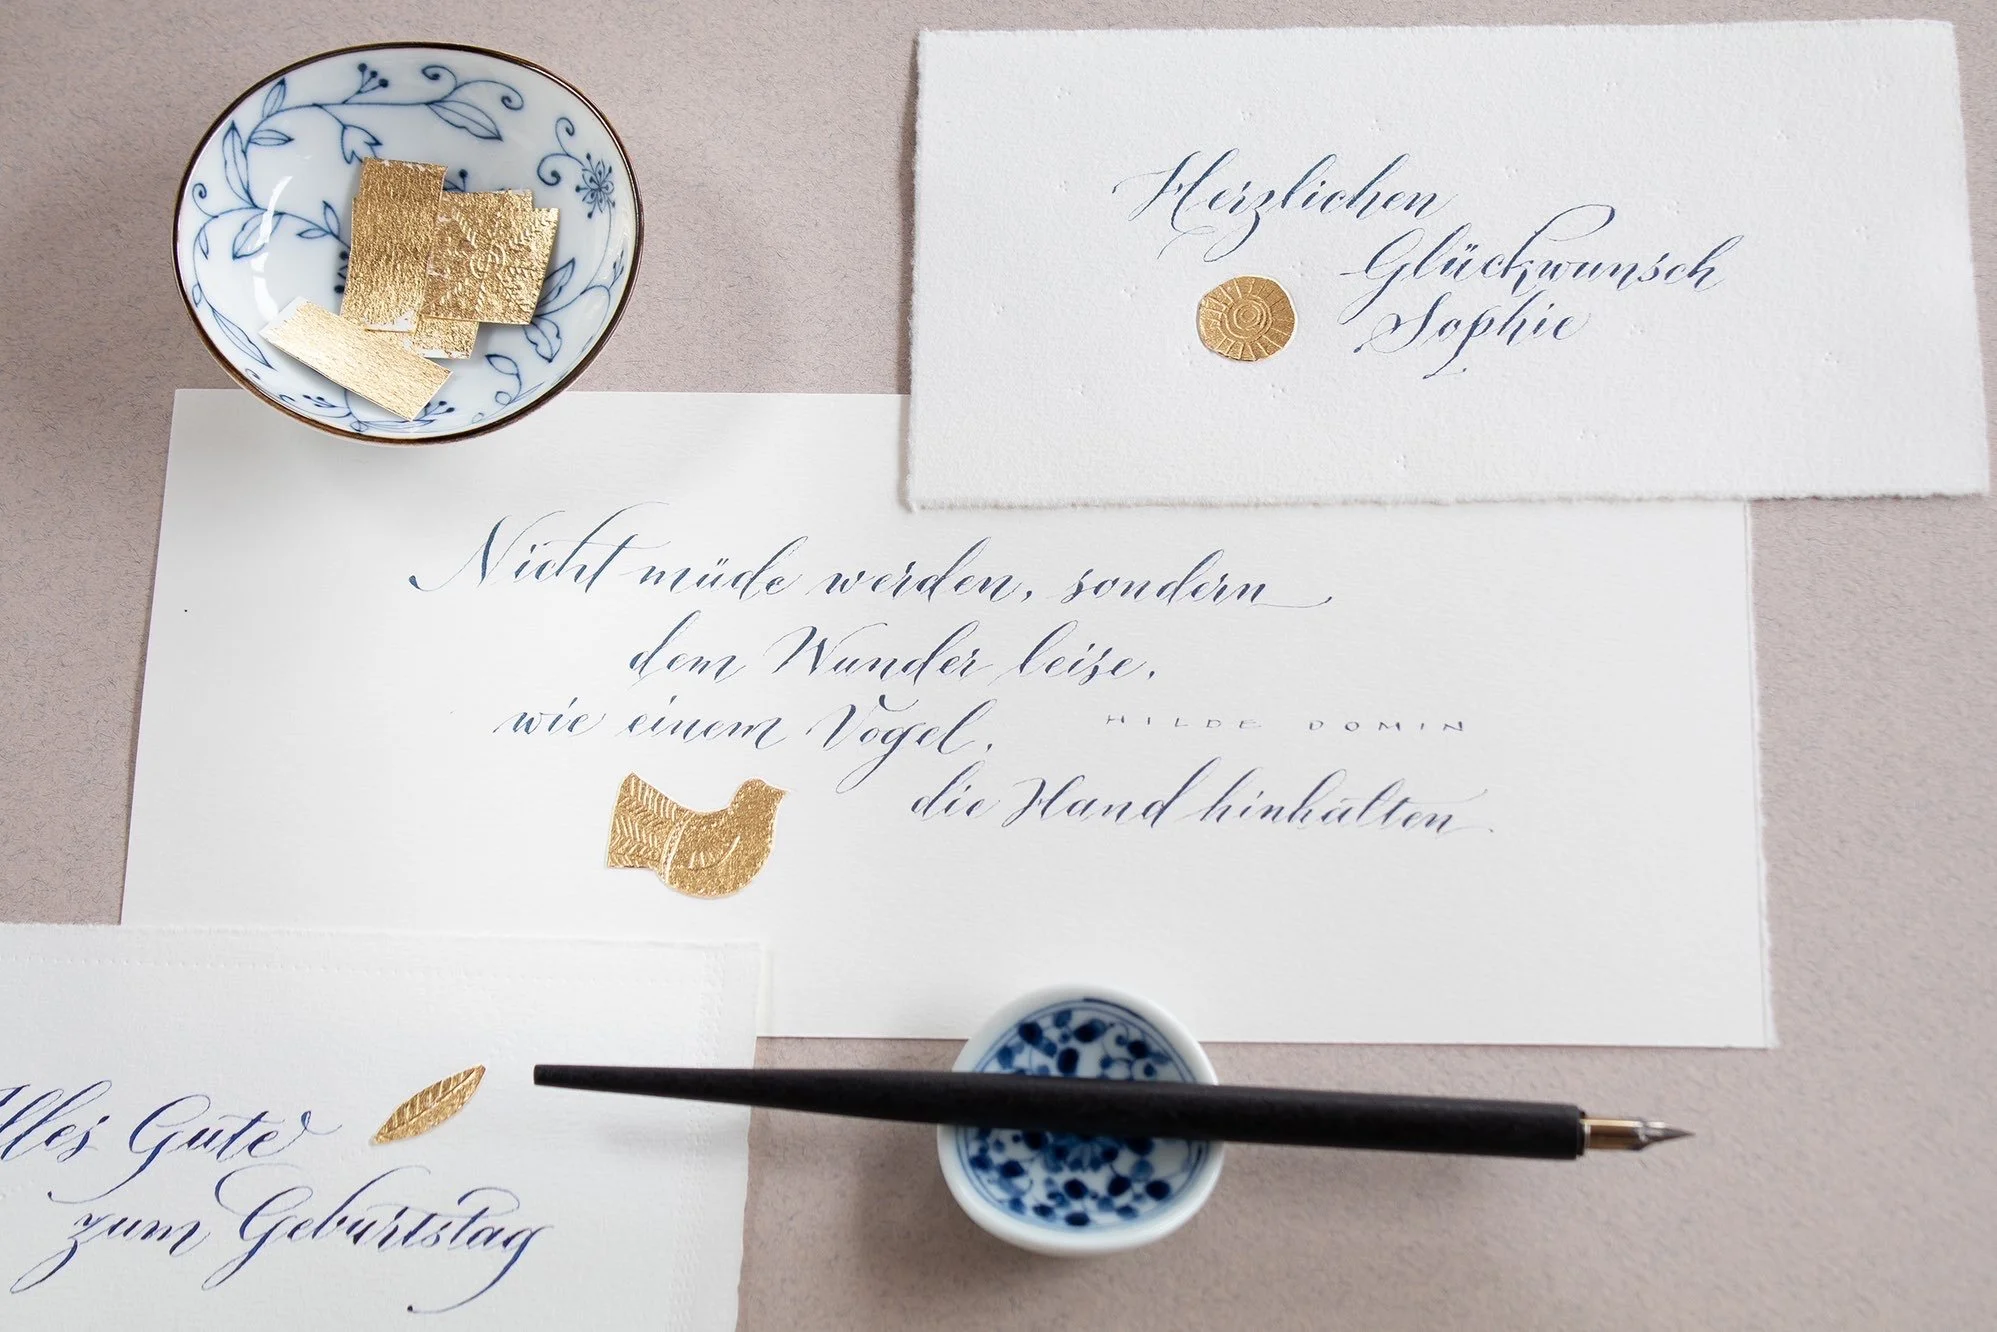 Herzlichen
Glückwunsch
Sophie
Nicht müde werden, sondern
dem Wunder leise,
wie einem Vogel,
HILDE DOMIN
die Hand hinhalten.
Alles Gute
zum Geburtstag